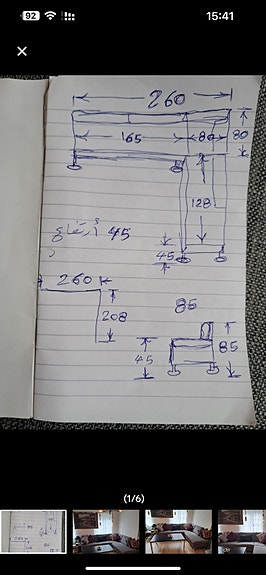 92
15:41
260
165
80
80
128
أرتفاع 45
45
260
208
86
45
85
(1/6)